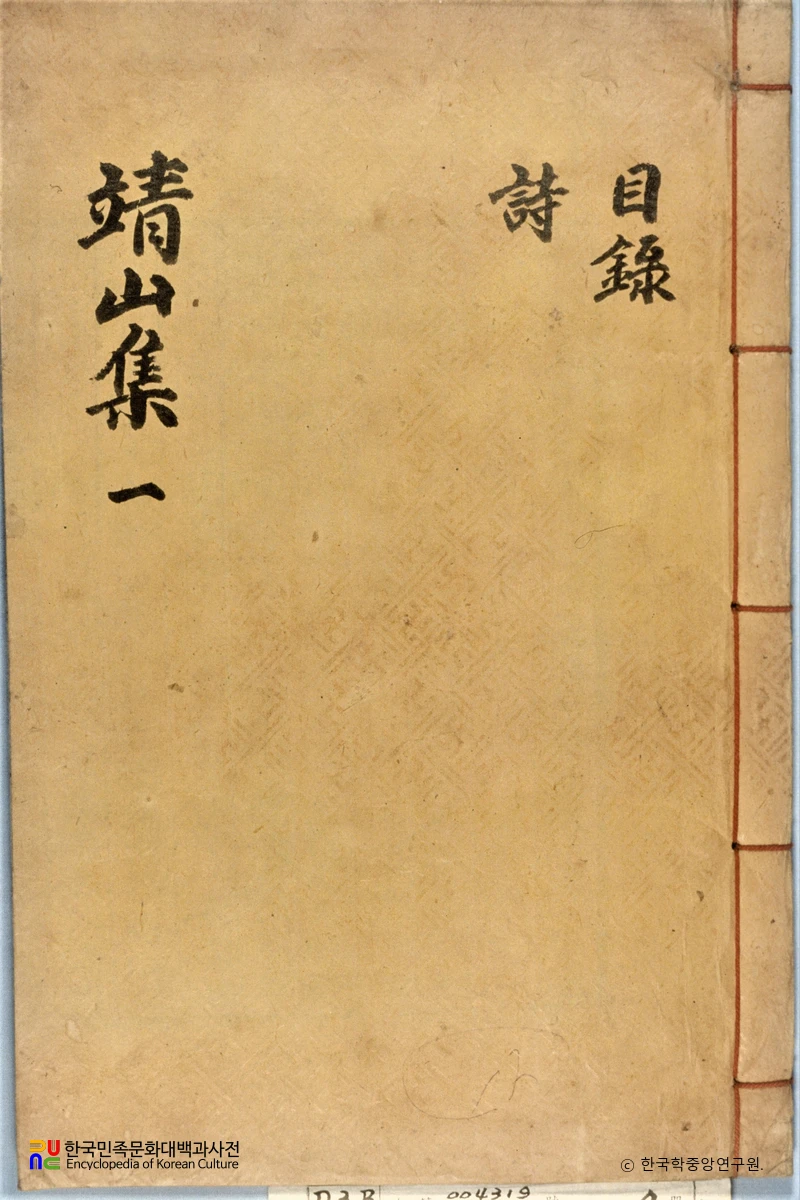 目錄
詩
靖山集 一
한국민족문화대백과사전
Encyclopedia of Korean Culture
© 한국학중앙연구원.
004319